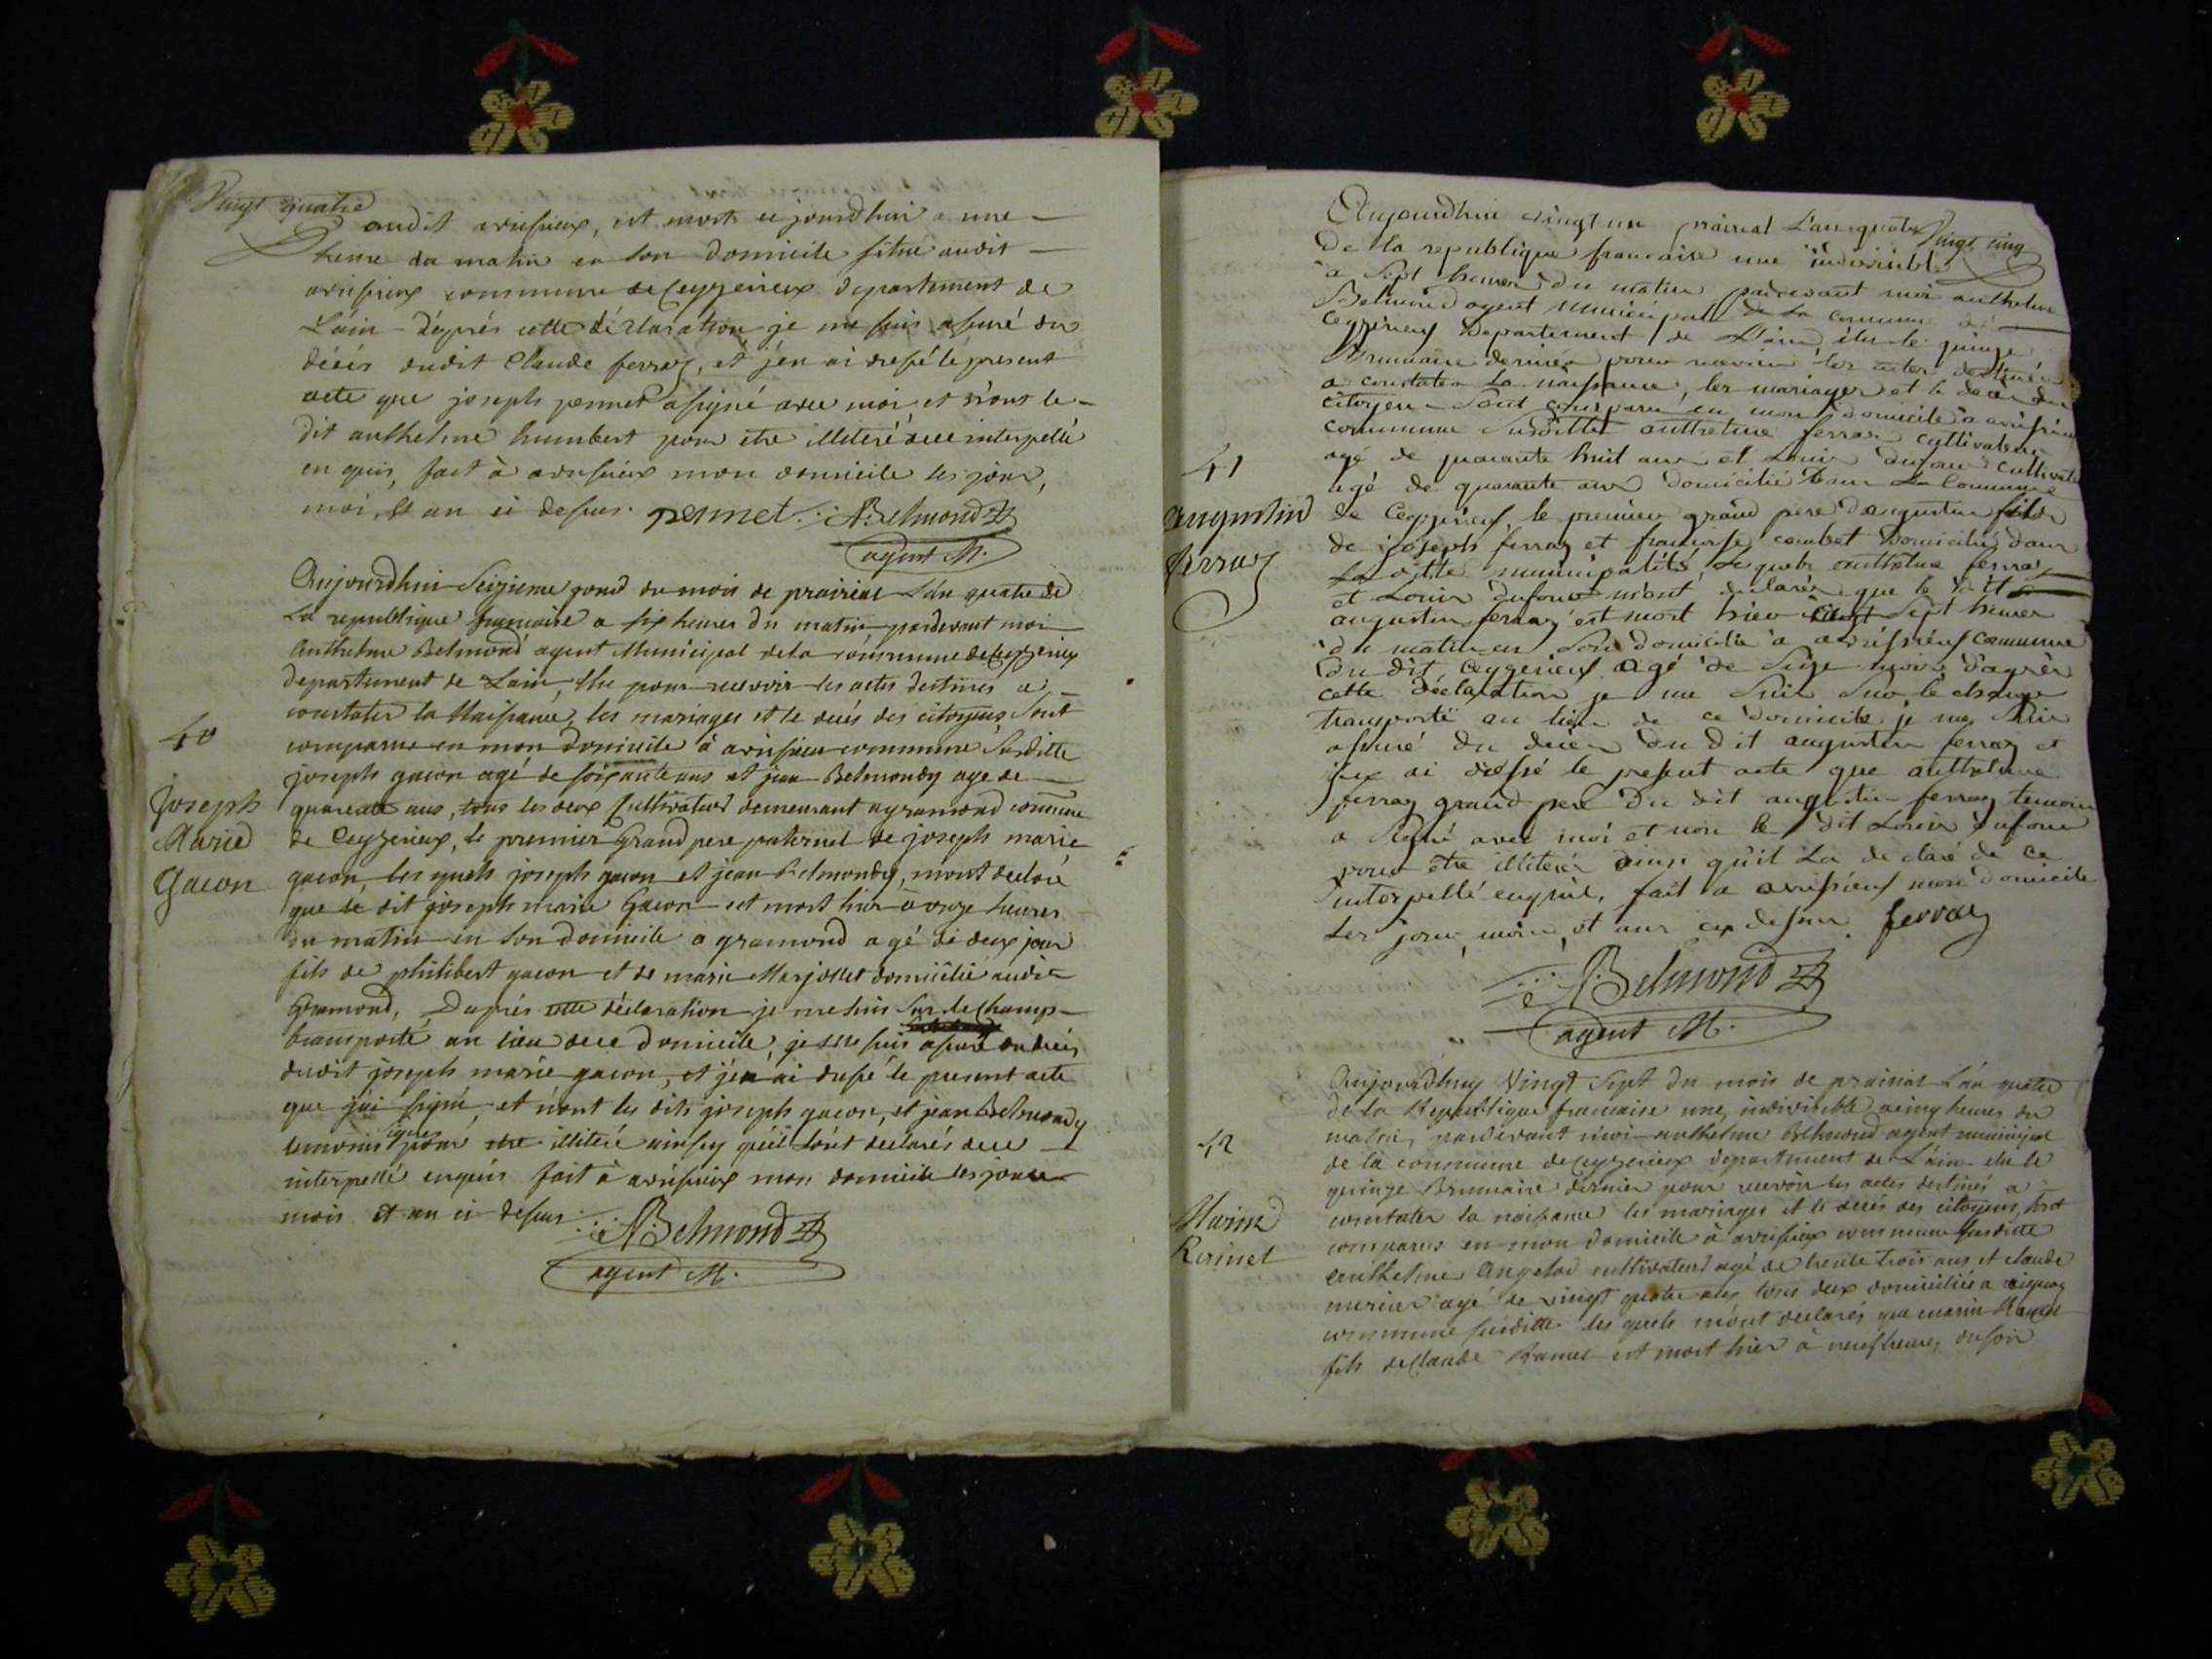 Vingt quatre
audit avrissieux, est mort ce jourdhui a une
heure du matin en son domicile situé audit
avrissieux commune de Ceyzerieux departement de
Láin d'aprés cette déclaration je me suis assuré du
décés dudit Claude ferraz, et j'en ai dressé le present
acte que joseph pennet a signé avec moi, et n'ont le
dit anthelme humbert pour etre illeteré de ce interpellé
enquis, fait à avrissieux mon domicile les jour,
mois, et an ci dessus. pennet. ABelmond
agent M.
Aujourdhui Seizieme jour du mois de prairial L'an quatre de
La republique francaise a six heures du matin pardevant moi
Anthelme Belmond agent Municipal de la commune de Ceyzerieux
departement de Lain, élu pour recevoir les actes destinés a
constater la Naissance, les mariages et le decés des citoyens, sont
comparus en mon domicile à avrissieux commune susditte
joseph gacon agé de soixante ans et jean Belmondy age de
quarente ans, tous les deux Cultivateurs demeurant a gramond commune
de Ceyzerieux, le premier Grand pere paternel de joseph marie
gacon, les quels joseph gacon et jean Belmondy, m'ont declaré
que le dit joseph marie Gacon est mort hier à onze heures
du matin en son domicile a gramond agé de deux jour
fils de philibert gacon et de marie Marjollet domicilié audit
Gramond, D'aprés cette déclaration je me suis sur le champ
transporté au lieu de ce domicile, je me suis assuré du décés
dudit joseph marie gacon, et j'en ai dressé le present acte
que j'ai signé, et n'ont les dits joseph gacon, et jean Belmondy
temoins signé pour etre illiteré ainsy qu'il l'ont declarés de ce
interpellé enquis fait à avrissieux mon domicile les jour
mois et an ci dessus. ABelmond
agent M.
40
joseph
Marie
Gacon
Vingt cinq
Aujourdhui vingt un prairial L'an quatre
De la republique francaise une indivisible
a sept heures du matin pardevant moi anthelme
Belmond agent municipal de la commune de
Ceyzerieux Departement de L'ain élu le quinze
Brumaire dernier pour recevoir les actes destinés
a constater la naissance, les mariages et le deces des
citoyens sont comparu en mon domicile a avrissieux
commune susditte anthelme ferraz cultivateur
agé de quarante huit ans et Louis dufour cultivateur
agé de quarante ans domicilié dans la Commune
de Ceyzerieux, le premier grand pere d'augustin fils
de joseph ferraz et francoise combet Domiciliés dans
La ditte municipalité, lesquels anthelme ferraz
et Louis dufour m'ont declarés que le dit
augustin ferraz est mort hier sept heures
du matin en son domicilie a avrissieux commune
du dit Ceyzerieux agé de seize mois d'aprés
cette déclaration je me suis sur le champ
transporté au lieu de ce domicile je me suis
assuré du deces du dit augustin ferraz et
j'ex ai dressé le present acte que anthelme
ferraz grand pere du dit augustin ferraz temoin
a signé avec moi et non le dit Louis dufour
pour etre illiteré ainsi qu'il La declaré de ce
interpellé enquis, fait a avrissieux mon domicile
Les jour, mois, et ans cy dessus. ferraz
ABelmond
agent M.
41
augustin
ferraz
Aujourdhuy Vingt Sept du mois de prairial L'an quatre
de la Republique francaise une, indivisible a cinq heures du
matin, pardevant moi anthelme Belmond agent municipal
de la commune de Ceyzerieux departement de L'ain élu le
quinze Brumaire dernier pour recevoir les actes destinés a
constater la naissance les mariages et le decés des citoyens, sont
comparus en mon domicile à avrissieux commune susditte
anthelme cultivateur agé de trente trois ans et claude
agé de vingt quatre ans tous deux domiciliés a
commune susditte les quels m'ont declarés que marin
fils de Claude est mort hier à neuf heures du soir
42